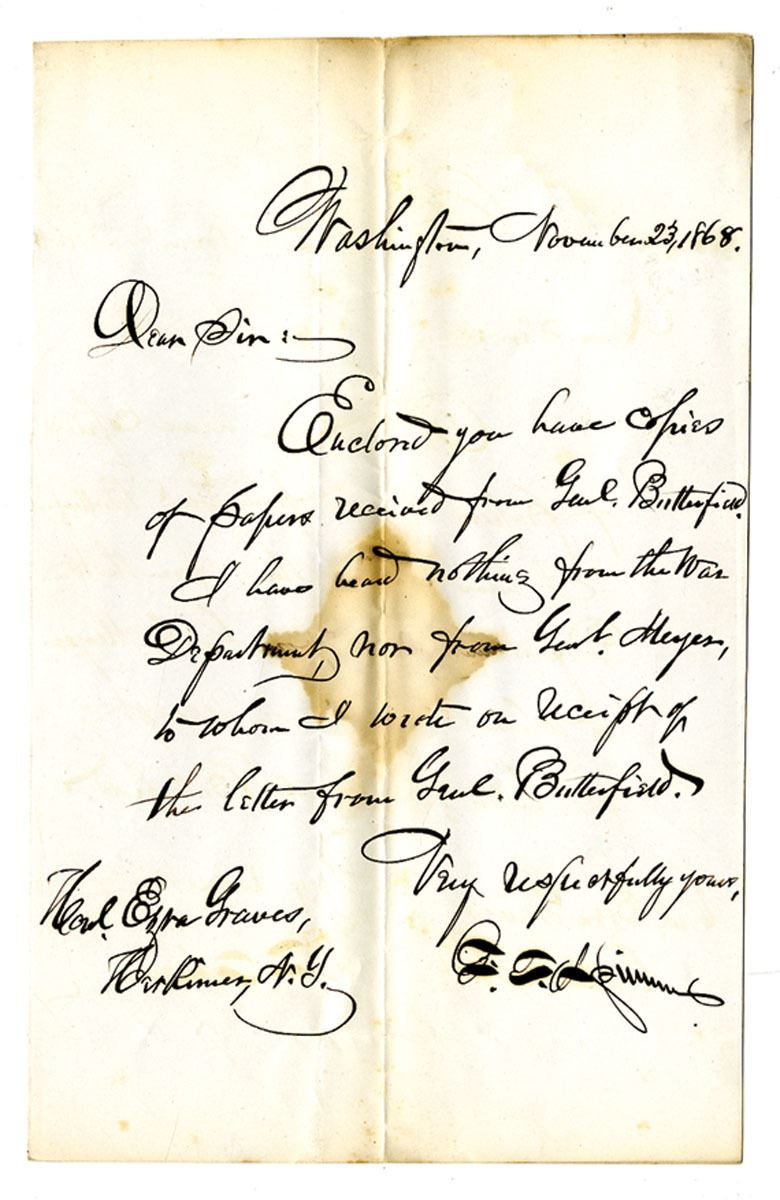 Washington, November 23, 1868.
Dear Sir:
Enclosed you have copies
of papers received from Genl. Butterfield.
I have heard nothing from the War
Department, nor from Genl. Meyer,
to whom I wrote on receipt of
the letter from Genl. Butterfield.
Very respectfully yours,
Ezra Graves,
Herkimer, N.Y.